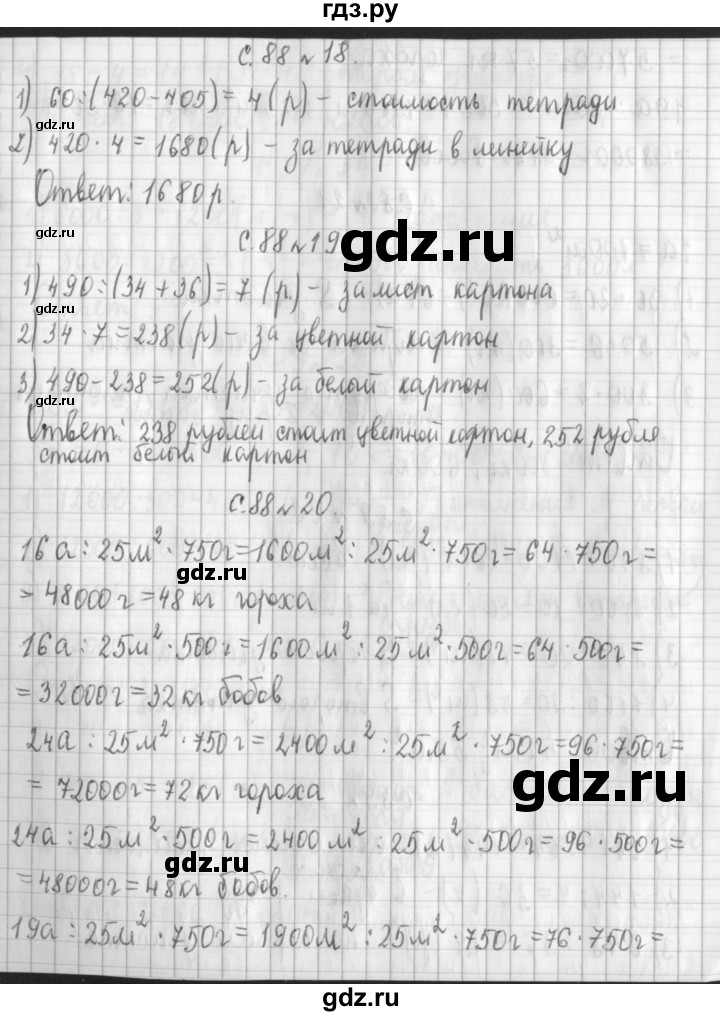 гдз.ру
с.88 № 18.
1) 60:(420-405)=4(р) - стоимость тетради
gdz.ru
2) 420·4=1680(р) - за тетради в линейку
gdz.ru
Ответ: 1680р.
gdz.ru
gdz.ru
с.88 № 19
1) 490:(34+36)=7 (р.) - за лист картона
gdz.ru
2) 34·7=238(р) - за цветной картон
3) 490-238=252(р) - за белый картон
gdz.ru
Ответ: 238 рублей стоит цветной картон, 252 рубля
стоит белый картон
с.88 № 20.
16а : 25м²·750г=1600м² : 25м²·750г=64·750г=
gdz.ru
= 48000г=48кг гороха
16а : 25м²·500г=1600м² : 25м²·500г=64·500г=
= 32000г=32кг бобов
24а : 25м²·750г=2400м² : 25м²·750г=96·750г=
gdz.ru
= 72000г=72кг гороха
24а : 25м²·500г=2400м² : 25м²·500г=96·500г=
gdz.ru
=48000г=48кг бобов.
19а : 25м²·750г=1900м² : 25м²·750г=76·750г=
gdz.ru